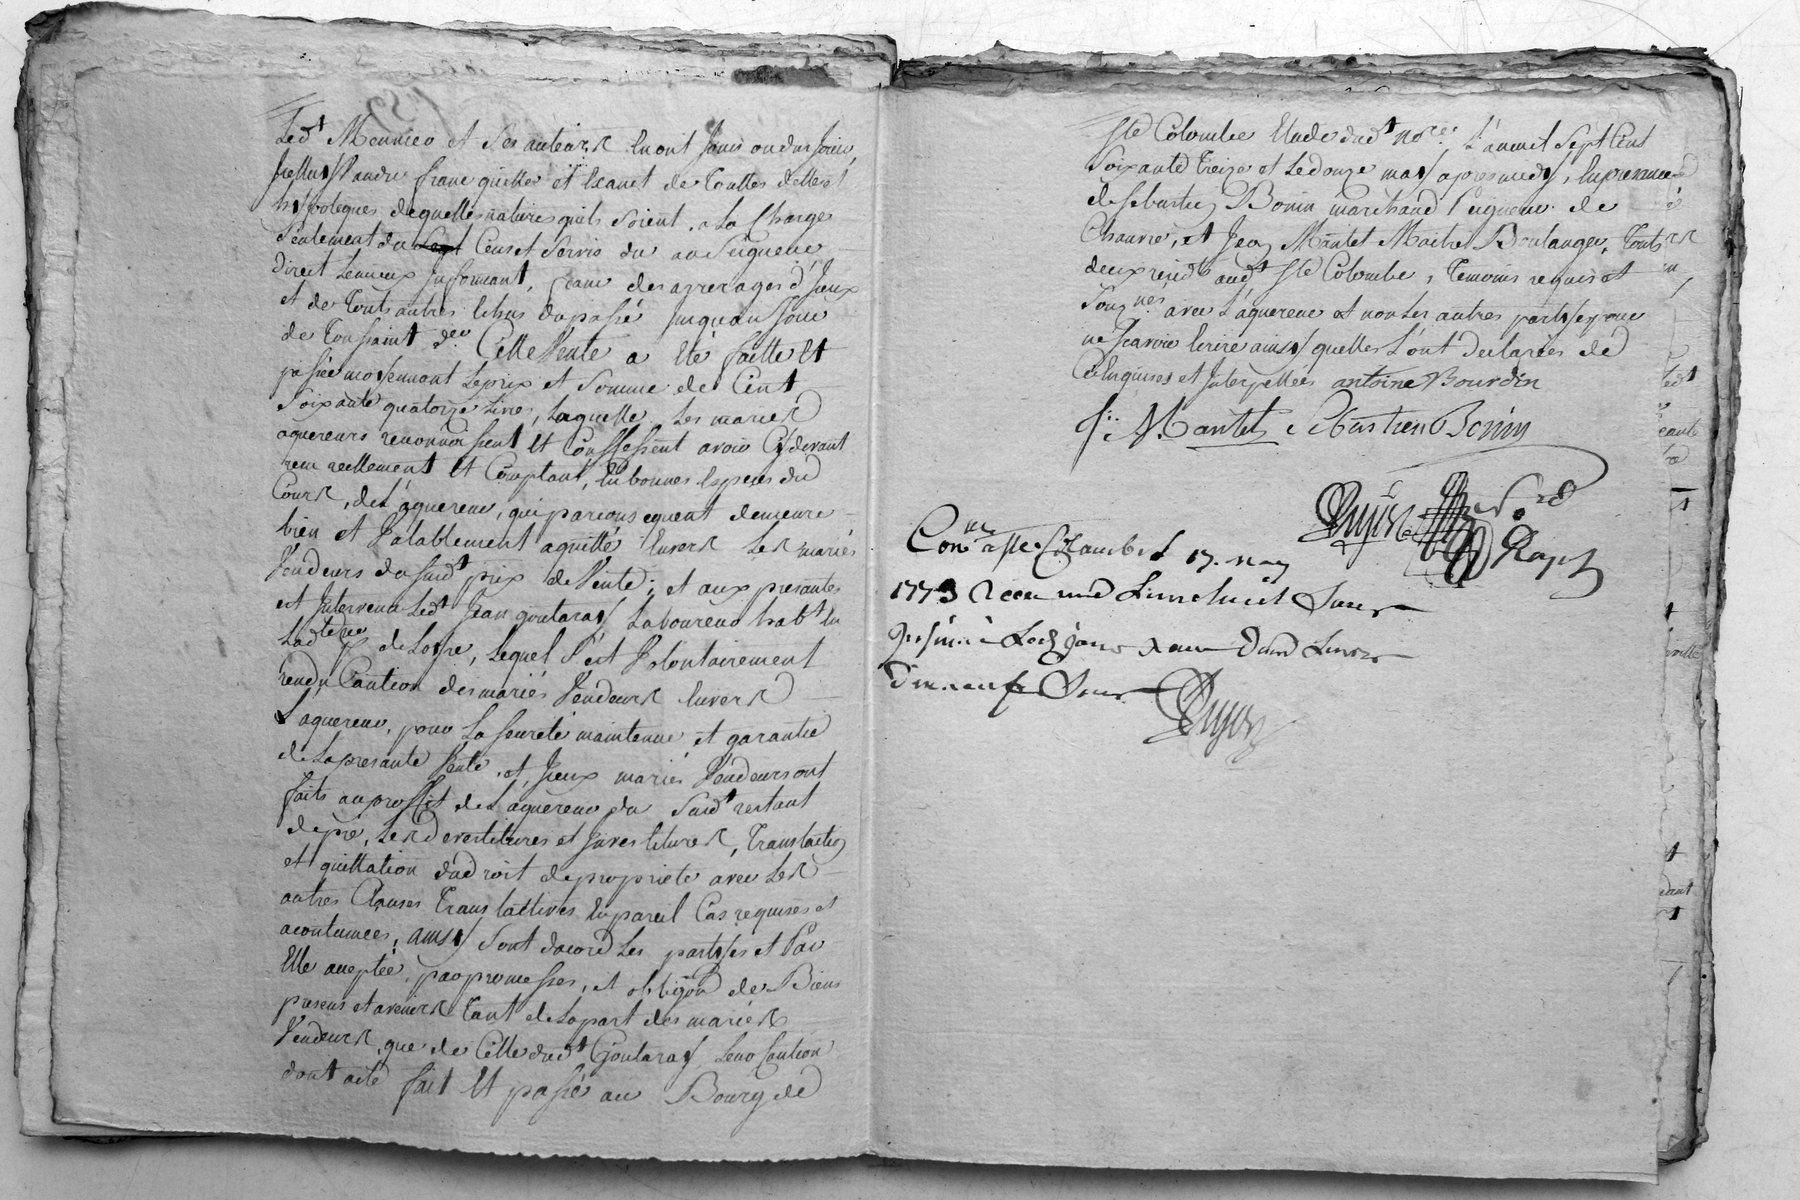 Led.t Meunier et ses auteurs en ont jouis ou du jouir,
franc quitte et Exanct de Touttes dettes et
hipoteques de quelles natures quils soient, a La Charge
Seulement du Cens et Servis du au Seigneur
Direct Lemeux Informant, franc des arrerages d'Jeux
et de Touts autres Echus du passé Jusqu'au Jour
de Toussaint der Cette Vente a Eté faitte Et
passée moyennant Le prix et Somme de Cent
Soixante quatorze Livres, Laquelle Les mariés
aquereurs reconnoissent Et Confessent avoir Cy devant
recu reellement Et Comptant, En bonnes Especes du
Cours, de L'aquereur, qui par consequent demeure
bien et Valablement aquitté Envers Les mariés
Vendeurs du susd.t prix de Vente; et aux presantes
est Intervenu Led.t Jean goutaray Laboureur hab.t En
Lad. de Loyre, Lequel S'est Volontairement
rendu Caution des mariés Vendeurs Envers
L'aquereur, pour La seureté maintenue et garantie
de La presante Vente, et Jceux mariés Vendeurs ont
faits au proffit de L'aquereur du Susd.t restant
de pré, Les devestitures et Investitures, Translation
et quittation du droit de proprieté avec Les
autres Clauses Translattives En pareil Cas requises et
acoutumées, ainsy Sont dacord Les partyes et Par
Elle acceptée, par promesses, et oblig.on de Biens
presens et avenirs Tant de La part des mariés
Vendeurs, que de Celle dud.t Goutaray Leur Caution
dont acte fait Et passé au Bourg de
Ste Colombe Etude dud.t no.re, L'an mil Sept Cent
Soixante Treize et Le douze may apres midy, En presence
de Sebastien Bonin marchand Peigneur de
Chanvre, et Jean Mantet Maitre Boulanger, Touts
deux resid.ts aud.t Ste Colombe, Temoins requis et
Sousg.nés avec L'aquereur et non Les autres partyes pour
ne Scavoir Ecrire ainsy quelles L'ont Declarées de
Ce Enquises et Interpellées antoine Bourdin
J. Mantet Sebastien Bonin
Con.lé a Ste Colombe Le 17. may
1773 Receu une Livre huit Sous